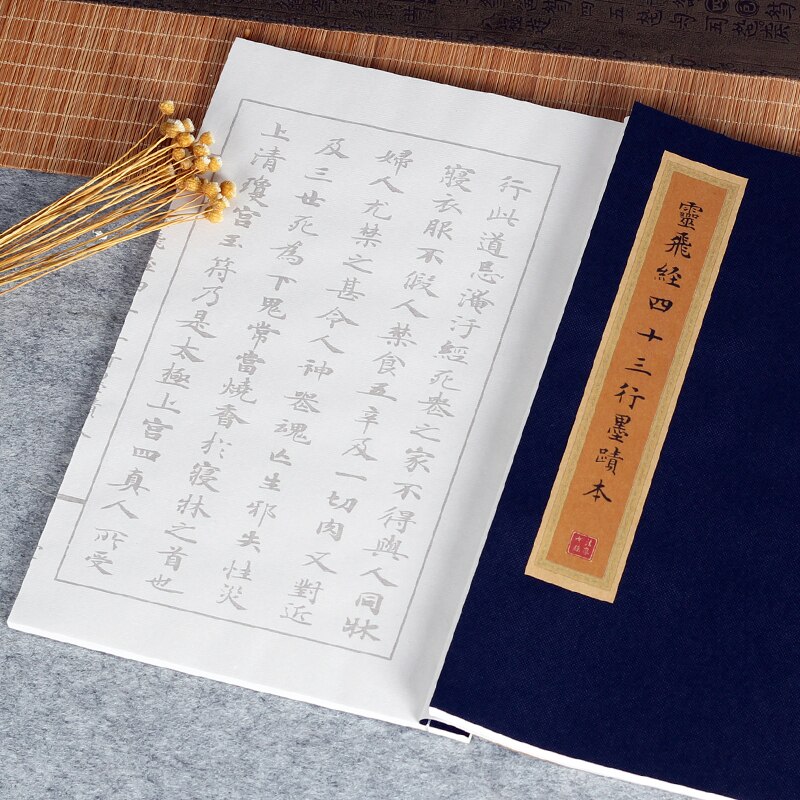 靈飛経四十三行墨蹟本
行此道忌淹汙經死喪之家不得與人同牀
寢衣服不假人禁食五辛及一切肉又對近
婦人尤禁之甚令人神喪魂亡生邪失性災
及三世死為下鬼常當燒香於寢牀之首也
上清瓊宮玉符乃是太極上宮四真人所受